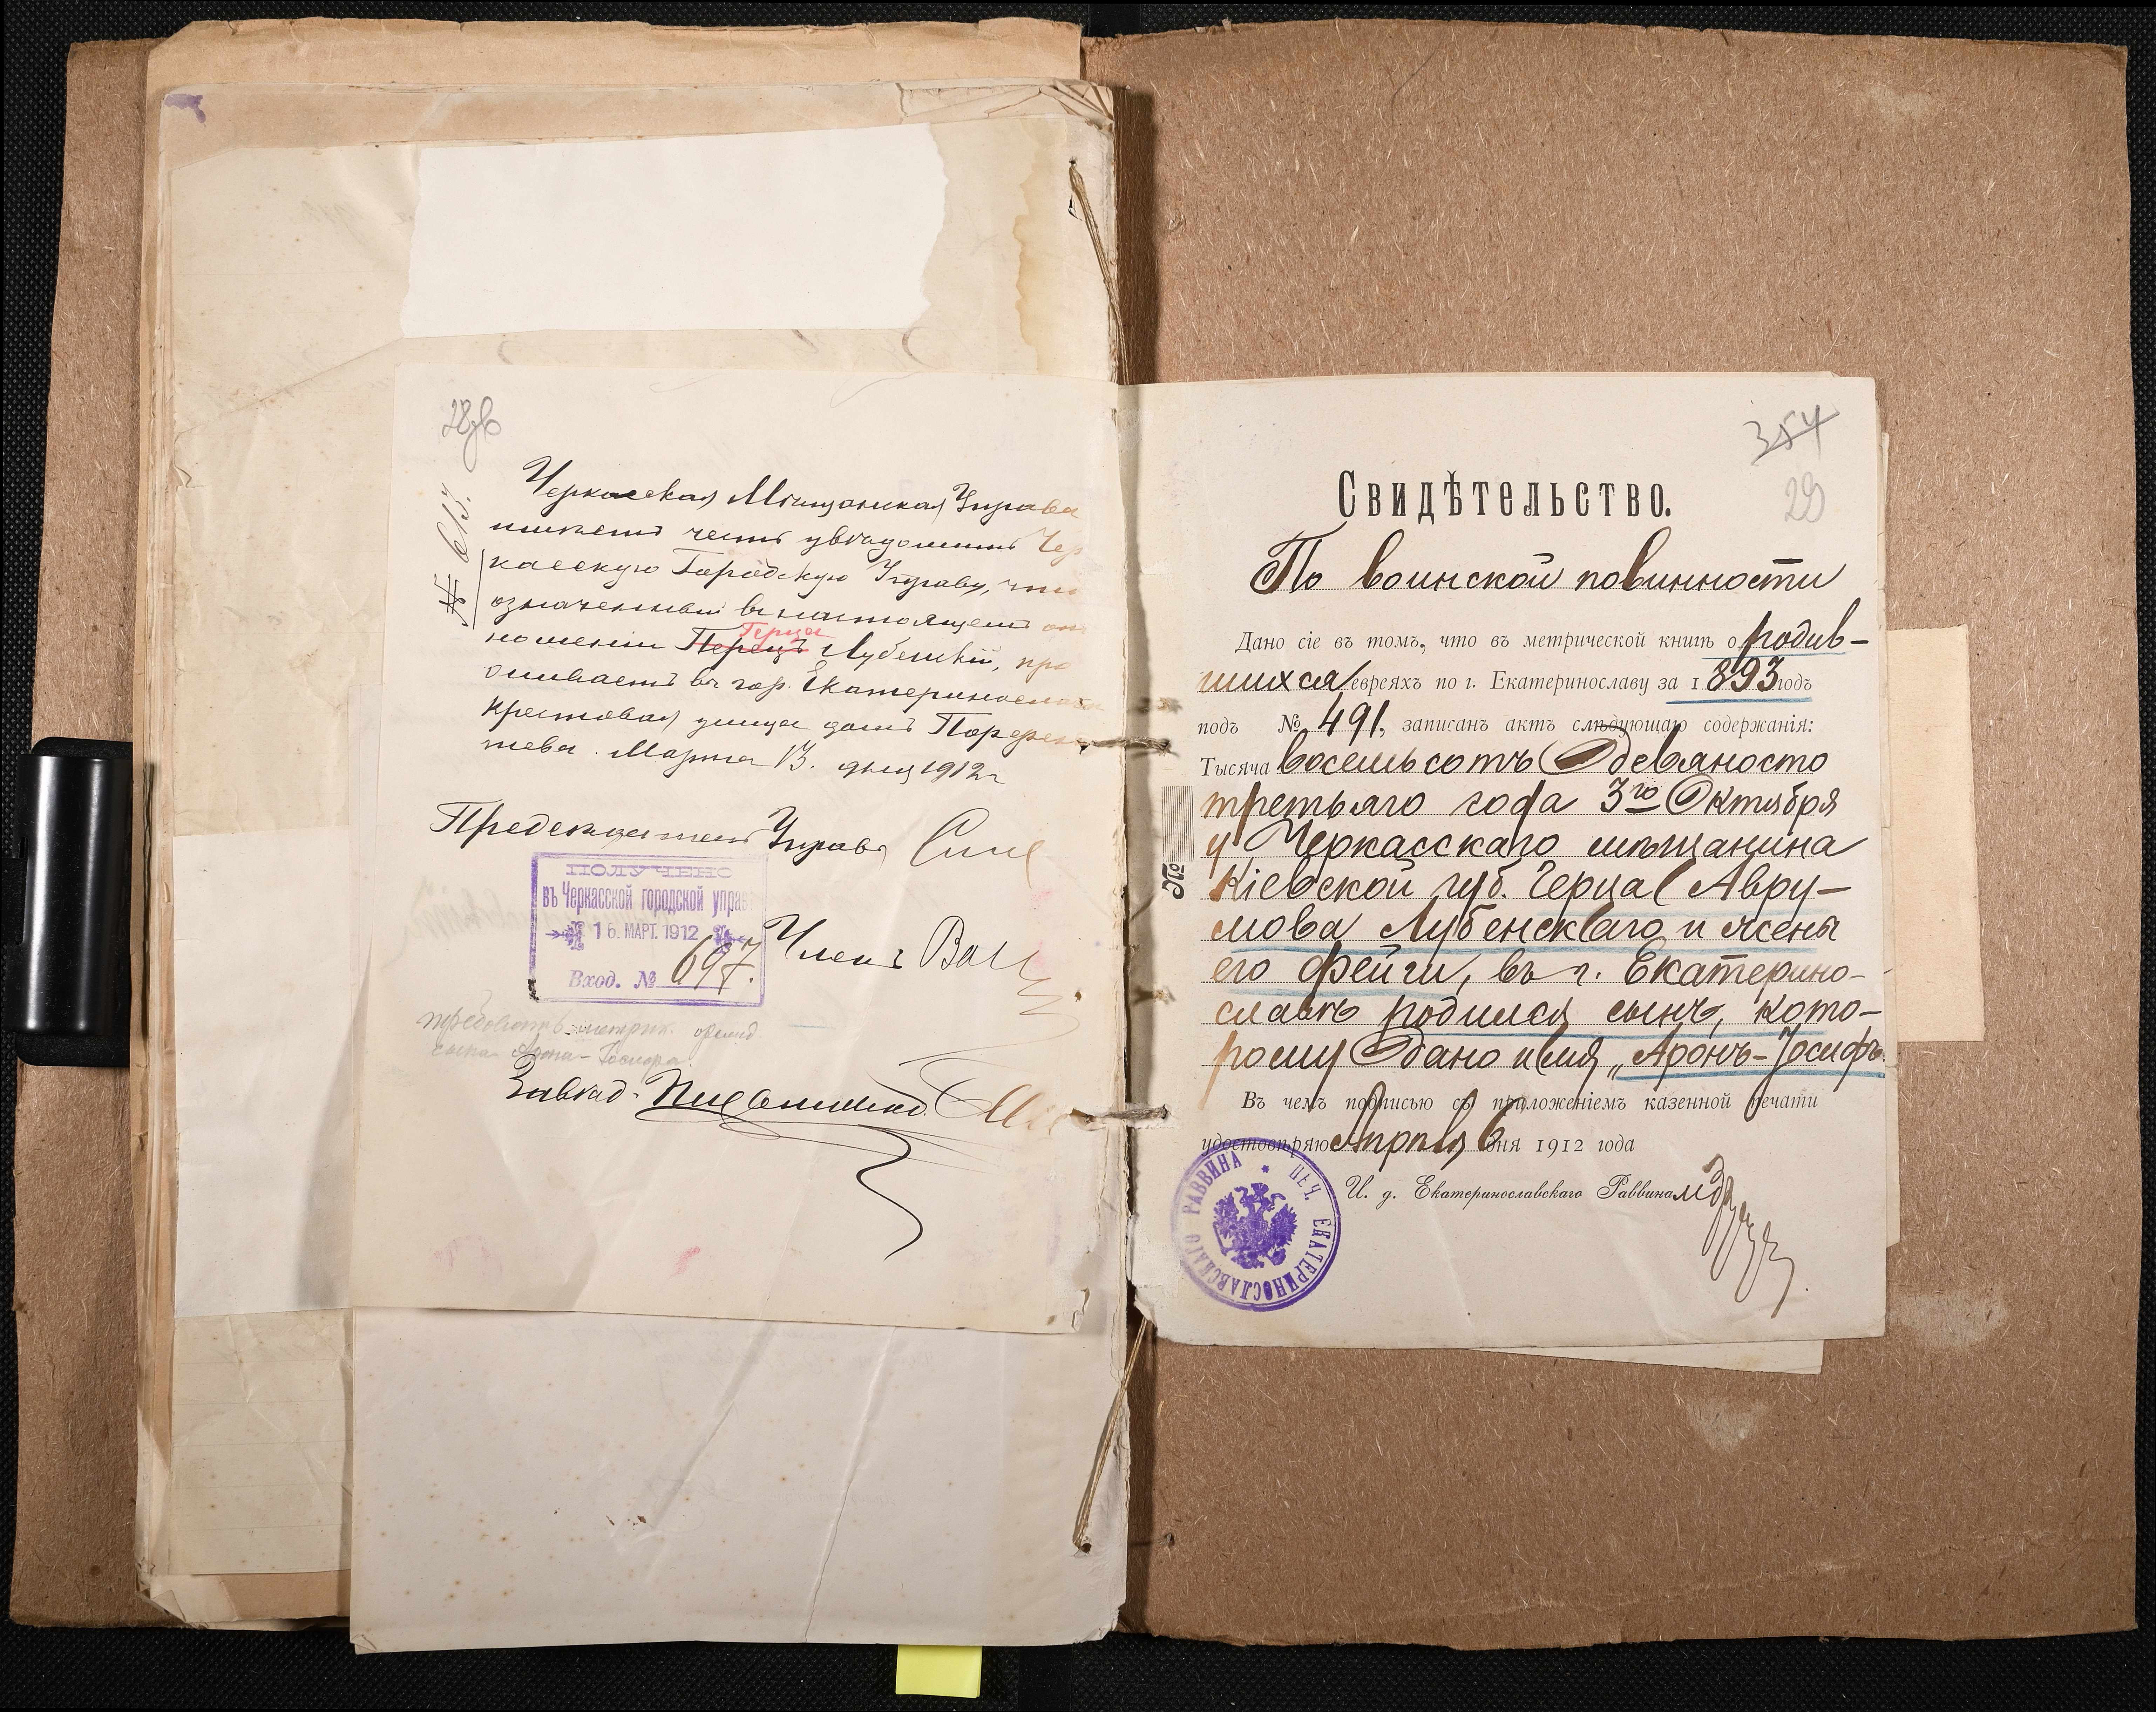 28об
№ 613.
Черкасская Мѣщанская Управа
имѣетъ честь увѣдомить Чер
касскую Городскую Управу, что
означенный въ настоящемъ от
ношеніи Перецъ Герца Лубенскій, про
живаетъ въ гор. Екатеринославѣ
Крестовая улица домъ
Марта 13. дня 1912 г
Предсѣдатель Управы
ПОЛУЧЕНО
въ Черкасской городской управ
16. МАРТ. 1912
Вход. № 697.
Членъ
требовать метрик.
сына Арона-Іосифа
354
29
Свидѣтельство.
По воинской повинности
Дано сіе въ томъ, что въ метрической книгѣ о родив-
шихся евреяхъ по г. Екатеринославу за 1893 годъ
подъ № 491, записанъ актъ слѣдующаго содержанія:
Тысяча восемьсотъ девяносто
третьяго года 3го Октября
у Черкасскаго мѣщанина
Кіевской губ. Герца Авру-
мова Лубенскаго и жены
его Фейги, въ г. Екатерино-
славѣ родился сынъ, кото-
рому дано имя „Аронъ-Іосифъ.
Въ чемъ подписью съ приложеніемъ казенной печати
удостовѣряю Апрѣля 6 дня 1912 года
И. д. Екатеринославскаго Раввина
ПЕЧ. ЕКАТЕРИНОСЛАВСКАГО РАВВИНА
№